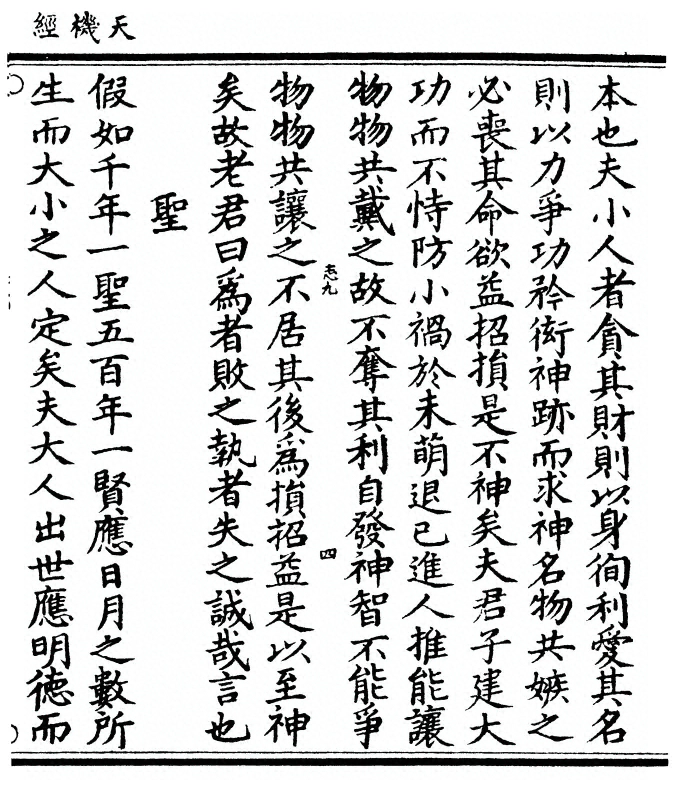 天機經
本也夫小人者貪其財則以身徇利愛其名
則以力爭功矜衒神跡而求神名物共嫉之
必喪其命欲益招損是不神矣夫君子建大
功而不恃防小禍於未萌退已進人推能讓
物物共戴之故不奪其利自發神智不能爭
志九
四
物物共讓之不居其後為損招益是以至神
矣故老君曰爲者敗之執者失之誠哉言也
聖
假如千年一聖五百年一賢應日月之數所
生而大小之人定矣夫大人出世應明德而